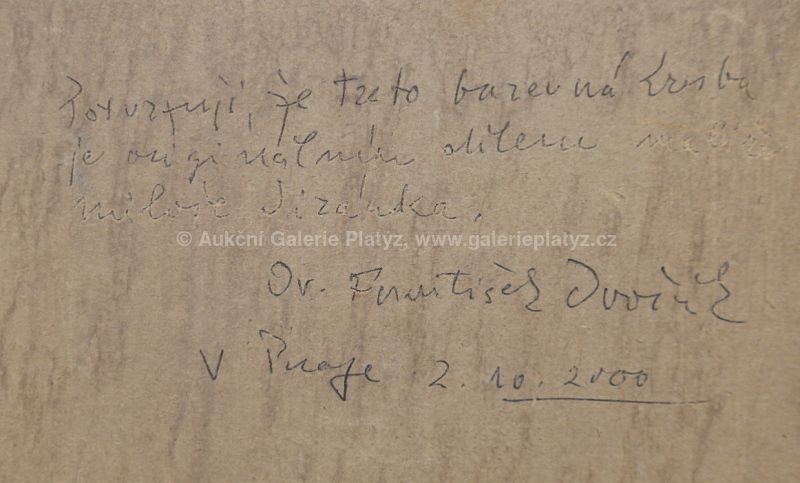 Potvrzuji, že tato barevná kresba
je originálním dílem malíře
Miloše Jiránka.
© Aukční Galerie Platýz, www.galerieplatyz.cz
Dr. František Dvořák
V Praze 2. 10. 2000